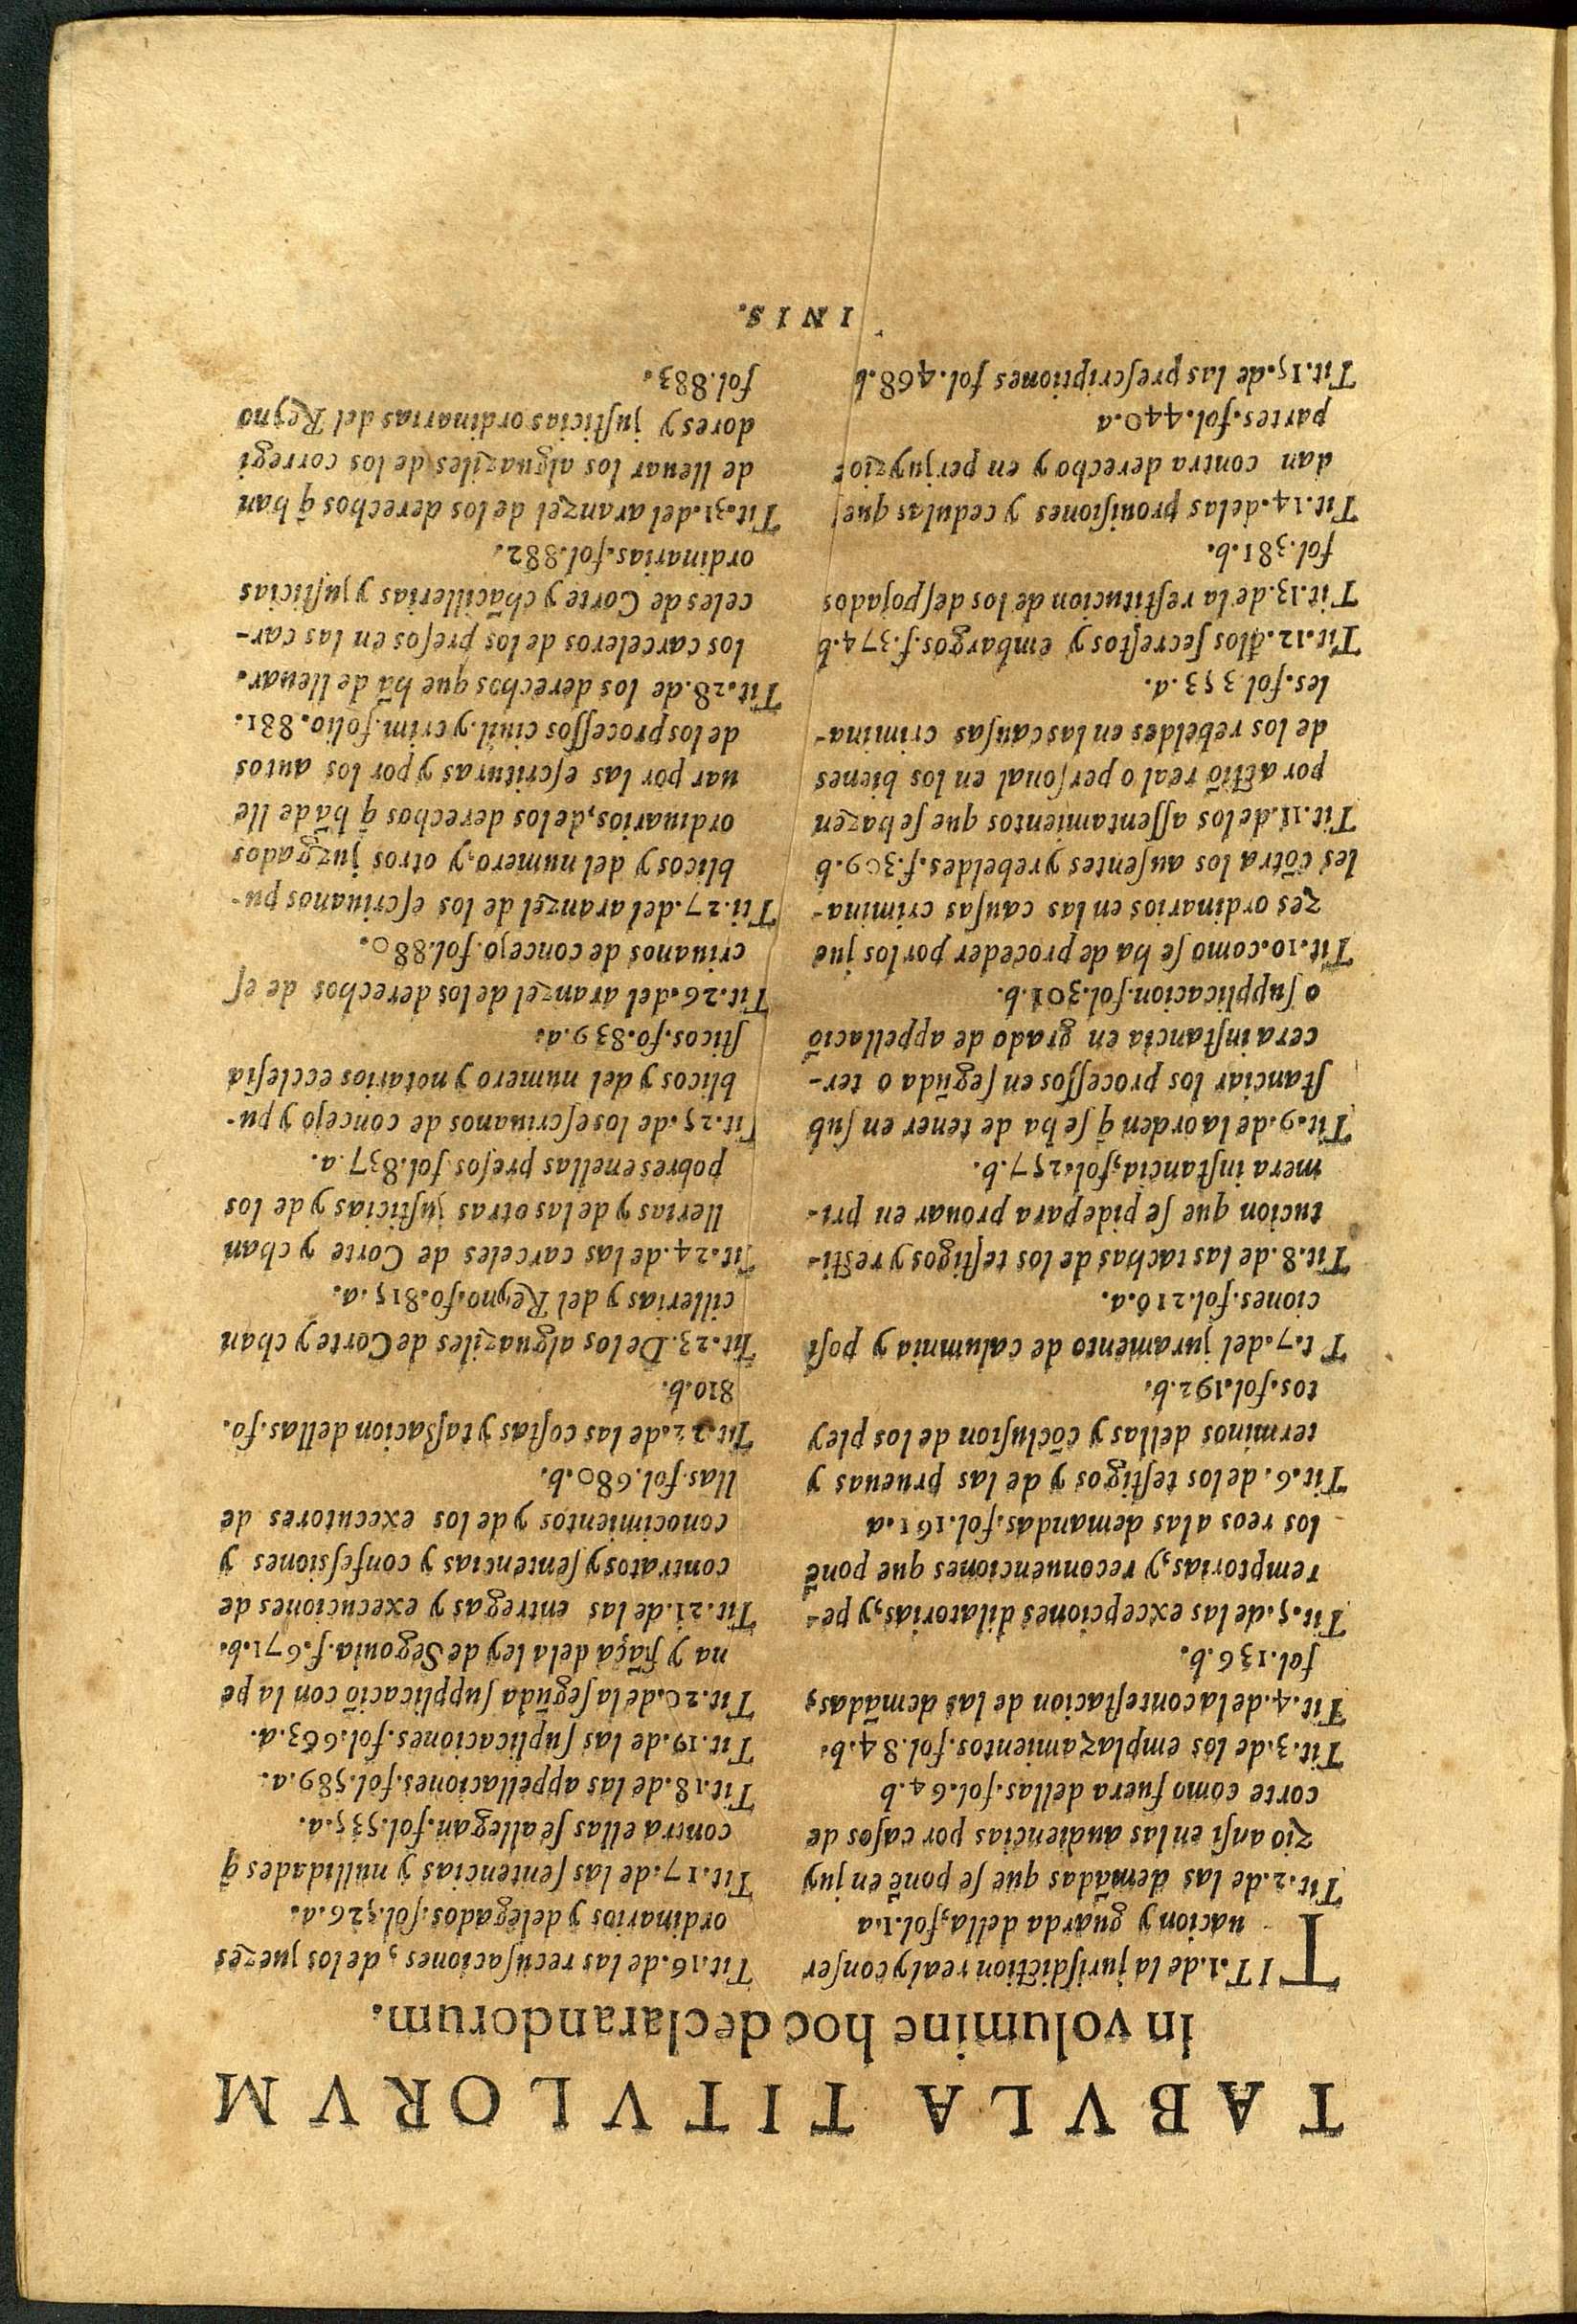 TABVLA TITVLORVM
in volumine hoc declarandorum.
TIT.1.de la jurisdiction real y conser
uacion y guarda della, fol.1.a
Tit.2.de las demādas que se ponē en juy
zio ansi en las audiencias por casos de
corte como fuera dellas.fol.64.b
Tit.3.de los emplazamientos.fol.84.b.
Tit.4.de la contestacion de las demādas,
fol.136.b.
Tit.5.de las excepciones dilatorias,y pe-
remptorias,y reconuenciones que ponē
los reos a las demandas.fol.161.a
Tit.6.de los testigos y de las prueuas y
terminos dellas y cōclusion de los pley
tos.fol.192.b.
T t.7.del juramento de calumnia y posi
ciones.fol.216.a.
Tit.8.de las tachas de los testigos y resti-
tucion que se pide para prouar en pri-
mera instancia,fol.257.b.
Tit.9.de la orden q̄ se ha de tener en sub
stanciar los processos en segūda o ter-
cera instancia en grado de appellaciō
o supplicacion.fol.301.b.
Tit.10.como se ha de proceder por los jue
zes ordinarios en las causas crimina-
les cōtra los ausentes y rebeldes.f.309.b
Tit.11.de los assentamientos que se hazen
por actiō real o personal en los bienes
de los rebeldes en las causas crimina-
les.fol.353.a.
Tit.12.đlos secrestos y embargos.f.374.b
Tit.13.de la restitucion de los despojados
fol.381.b.
Tit.14.de las prouisiones y cedulas que
dan contra derecho y en perjuyzio
partes.fol.440.a
Tit.15.de las prescriptiones fol.468.b
Tit.16.de las recusaciones, de los juezes
ordinarios y delegados.fol.526.a.
Tit.17.de las sentencias y nullidades q̄
contra ellas se allegan.fol.535.a.
Tit.18.de las appellaciones.fol.589.a.
Tit.19.de las suplicaciones.fol.663.a.
Tit.20.de la segūda supplicaciō con la pe
na y fiāça de la ley de Segouia.f.671.b.
Tit.21.de las entregas y execuciones de
contratos y sentencias y confessiones y
conocimientos y de los executores de
llas.fol.680.b.
Tit.22.de las costas y tassacion dellas.fo.
810.b.
Tit.23.De los alguaziles de Corte y chan
cillerias y del Reyno.fo.815.a.
Tit.24.de las carceles de Corte y chan
llerias y de las otras justicias y de los
pobres en ellas presos.fol.837.a.
Tit.25.de los escriuanos de concejo y pu-
blicos y del numero y notarios ecclesia
sticos.fo.839.a.
Tit.26.del aranzel de los derechos de es
criuanos de concejo.fol.880.
Tit.27.del aranzel de los escriuanos pu-
blicos y del numero,y otros juzgados
ordinarios,de los derechos q̄ hā de lle
uar por las escrituras y por los autos
de los processos ciuil.y crim.folio.881.
Tit.28.de los derechos que hā de lleuar.
los carceleros de los presos en las car-
celes de Corte y chācillerias y justicias
ordinarias.fol.882.
Tit.31.del aranzel de los derechos q̄ han
de lleuar los alguaziles de los corregi
dores y justicias ordinarias del Reyno
fol.883.
INIS.